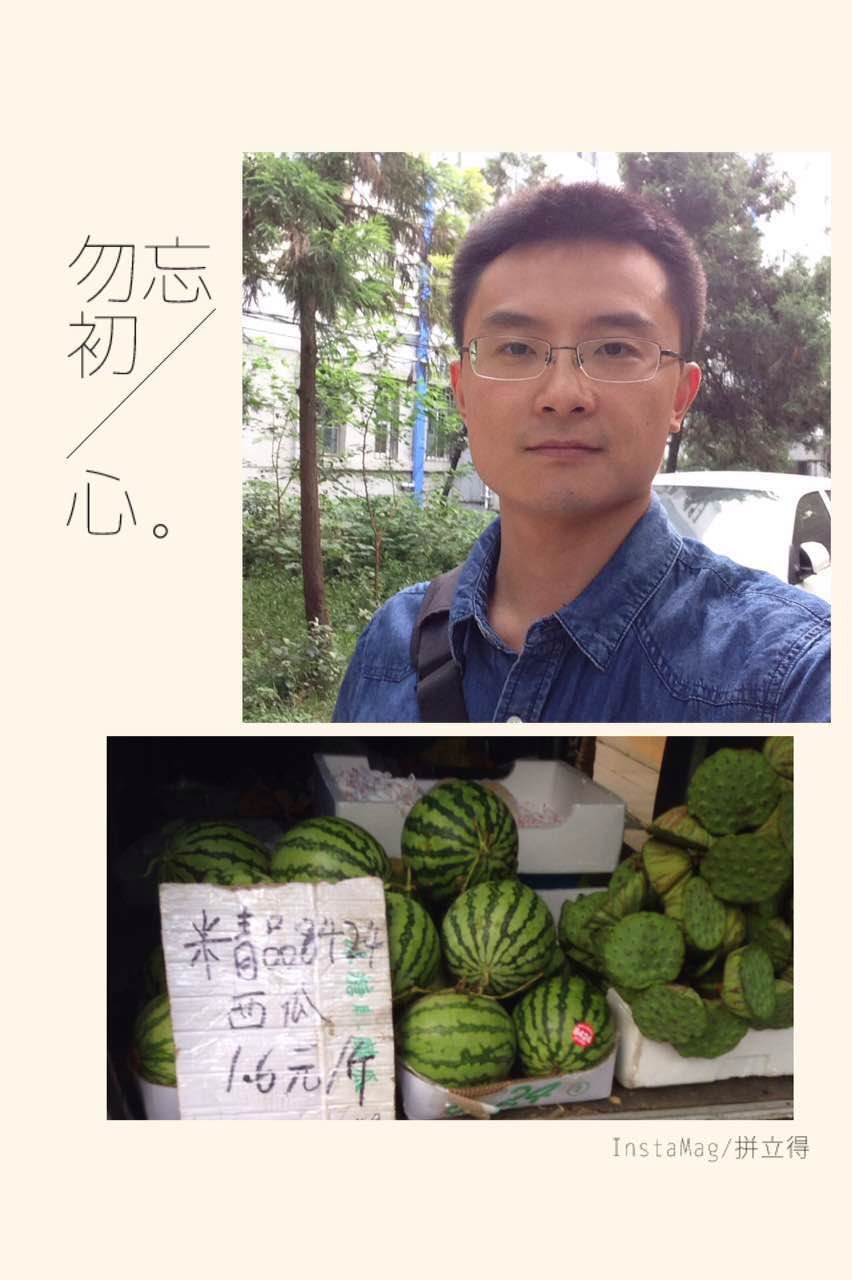 勿忘
初
心。
精品8424
西瓜
1.6元/斤
8424
24
InstaMag/拼立得